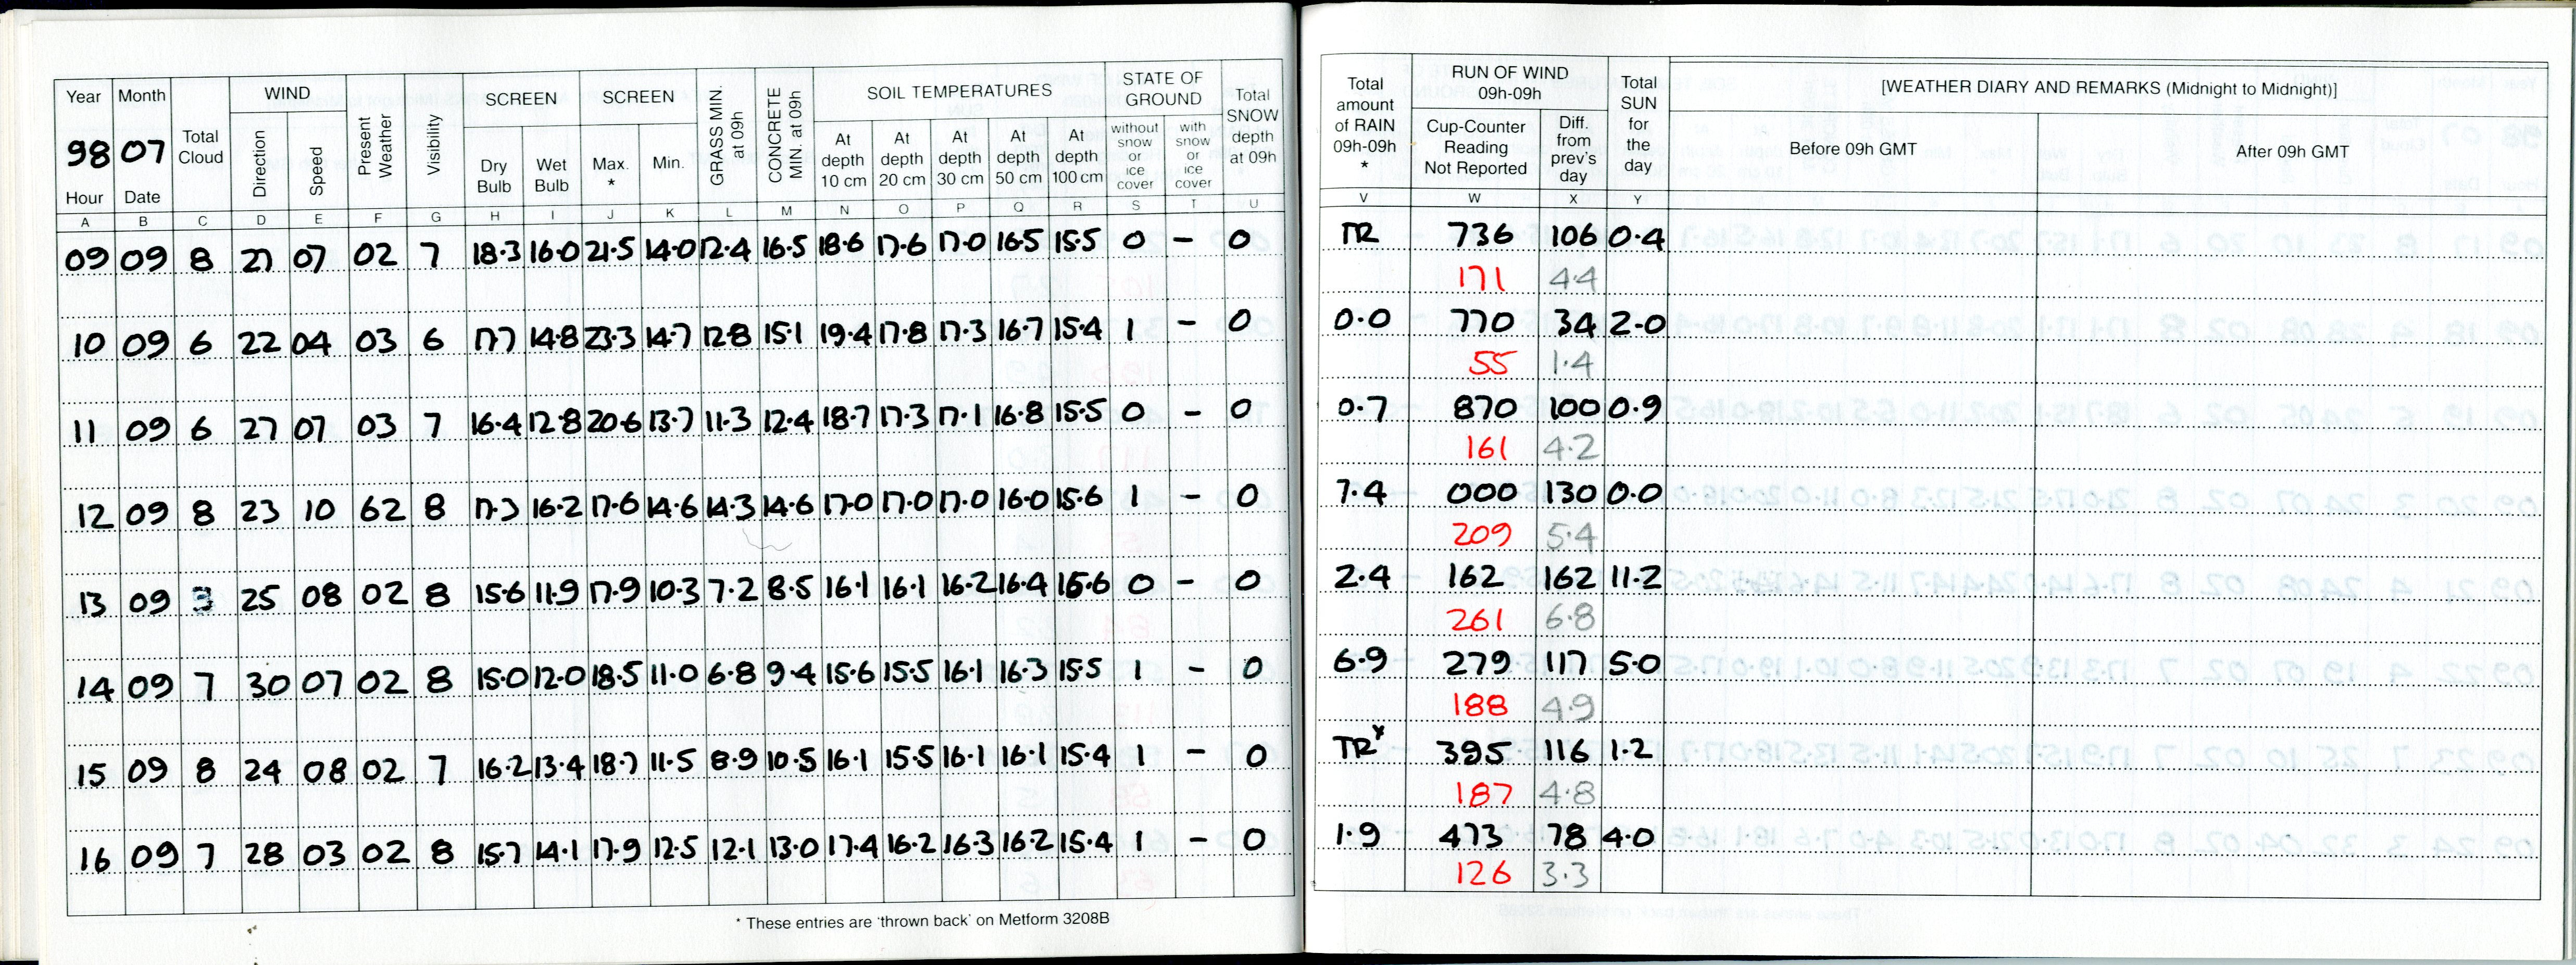 Year Month Total Cloud WIND Present Weather Visibility SCREEN SCREEN GRASS MIN. at 09h CONCRETE MIN. at 09h SOIL TEMPERATURES STATE OF GROUND Total SNOW depth at 09h
98 07
Hour Date Direction Speed Dry Bulb Wet Bulb Max. * Min. At depth 10 cm At depth 20 cm At depth 30 cm At depth 50 cm At depth 100 cm without snow or ice cover with snow or ice cover
A B C D E F G H I J K L M N O P Q R S T U
09 09 8 27 07 02 7 18.3 16.0 21.5 14.0 12.4 16.5 18.6 17.6 17.0 16.5 15.5 0 - 0
10 09 6 22 04 03 6 17.7 14.8 23.3 14.7 12.8 15.1 19.4 17.8 17.3 16.7 15.4 1 - 0
11 09 6 27 07 03 7 16.4 12.8 20.6 13.7 11.3 12.4 18.7 17.3 17.1 16.8 15.5 0 - 0
12 09 8 23 10 62 8 17.3 16.2 17.6 14.6 14.3 14.6 17.0 17.0 17.0 16.0 15.6 1 - 0
13 09 3 25 08 02 8 15.6 11.9 17.9 10.3 7.2 8.5 16.1 16.1 16.2 16.4 15.6 0 - 0
14 09 7 30 07 02 8 15.0 12.0 18.5 11.0 6.8 9.4 15.6 15.5 16.1 16.3 15.5 1 - 0
15 09 8 24 08 02 7 16.2 13.4 18.7 11.5 8.9 10.5 16.1 15.5 16.1 16.1 15.4 1 - 0
16 09 7 28 03 02 8 15.7 14.1 17.9 12.5 12.1 13.0 17.4 16.2 16.3 16.2 15.4 1 - 0
* These entries are 'thrown back' on Metform 3208B
Total amount of RAIN 09h-09h * RUN OF WIND 09h-09h Total SUN for the day [WEATHER DIARY AND REMARKS (Midnight to Midnight)]
Cup-Counter Reading Not Reported Diff. from prev's day Before 09h GMT After 09h GMT
V W X Y
TR 736 106 0.4
171 4.4
0.0 770 34 2.0
55 1.4
0.7 870 100 0.9
161 4.2
7.4 000 130 0.0
209 5.4
2.4 162 162 11.2
261 6.8
6.9 279 117 5.0
188 4.9
TR* 395 116 1.2
187 4.8
1.9 473 78 4.0
126 3.3